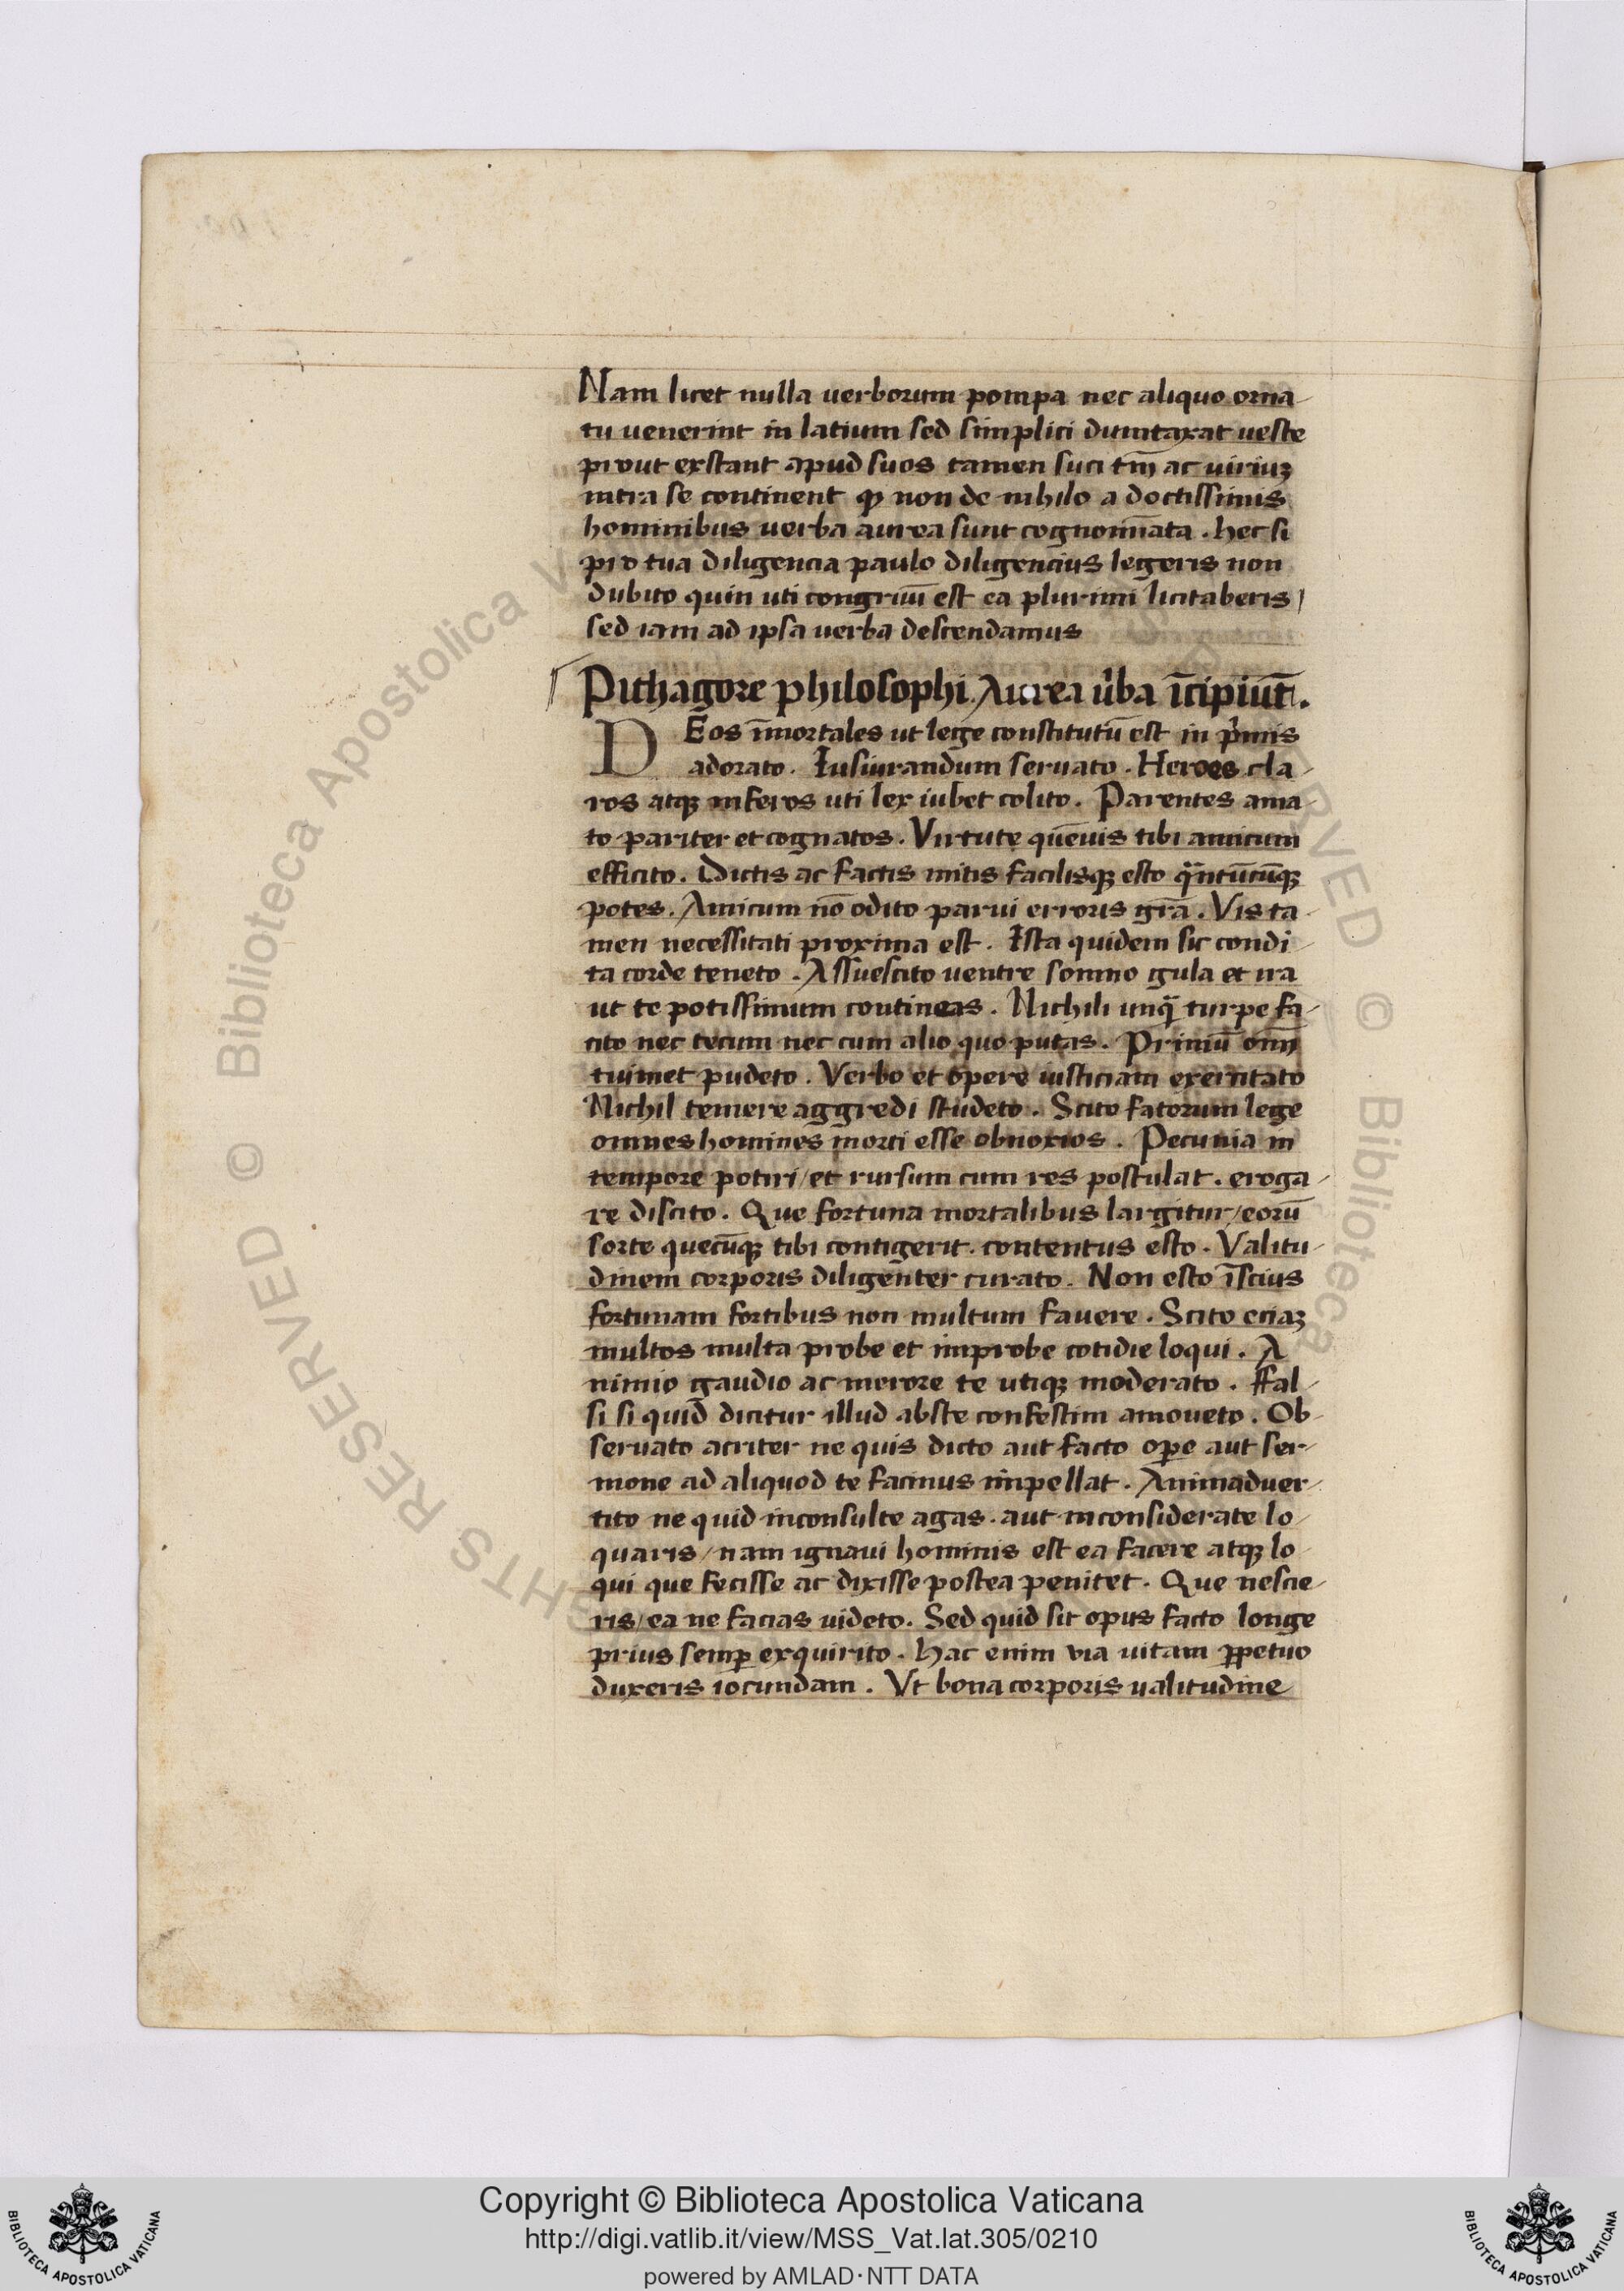 Nam licet nulla uerborum pompa nec aliquo orna-
tu uenerint in latium sed simplici dumtaxat ueste
prout exstant apud suos tamen suci tm̄ ac uiriuꝫ
intra se continent ꝙ non de nihilo a doctissimis
hominibus uerba aurea sunt cognomīata . hec si
pro tua diligencia paulo diligencius legeris non
dubito quin uti congruū est ea plurimi licitaberis /
sed iam ad ipsa uerba descendamus
Pithagore philosophi Aurea u̓ba īcipiūt .
DEos īmortales ut lege constitutū est in p̓mis
adorato . Iusiurandum seruato . Heroes cla-
ros atqꝫ inferos uti lex iubet colito . Parentes ama-
to pariter et cognatos . Virtute quēuis tibi amicum
efficito . Dictis ac factis mitis facilisqꝫ esto qᷓntūcūqꝫ
potes . Amicum nō odito parui erroris grā . Vis ta-
men necessitati proxima est . Ista quidem sic condi-
ta corde teneto . Assuescito uentre somno gula et ira
ut te potissimum contineas . Nichili unqᷓ turpe fa-
cito nec tecum nec cum alio quo putas . Primū om̄
tuimet pudeto . Verbo et opere iusticiam exercitato
Nichil temere aggredi studeto . Scito fatorum lege
omnes homines morti esse obnoxios . Pecunia in
tempore potiri / et rursum cum res postulat . eroga-
re discito . Que fortuna mortalibus largitur / eorū
sorte quecūqꝫ tibi contigerit . contentus esto . Valitu-
dinem corporis diligenter curato . Non esto īscius
fortunam fortibus non multum fauere . Scito eciaꝫ
multos multa probe et improbe cotidie loqui . A
nimio gaudio ac merore te utiqꝫ moderato . ffal-
si si quid dicitur illud abste confestim amoueto . Ob-
seruato acriter ne quis dicto aut facto oꝑe aut ser-
mone ad aliquod te facinus impellat . Animaduer-
tito ne quid inconsulte agas . aut inconsiderate lo-
quaris / nam ignaui hominis est ea facere atqꝫ lo-
qui que fecisse ac dixisse postea penitet . Que nescie-
ris / ea ne facias uideto . Sed quid sit opus facto longe
prius semꝑ exquirito . Hac enim uia uitam ꝑpetuo
duxeris iocundam . Vt bona corporis ualitudine
© Biblioteca Apostolica V
HTS RESERVED
RVED © Biblioteca
Copyright © Biblioteca Apostolica Vaticana
http://digi.vatlib.it/view/MSS_Vat.lat.305/0210
powered by AMLAD·NTT DATA
BIBLIOTECA APOSTOLICA VATICANA
BIBLIOTECA APOSTOLICA VATICANA